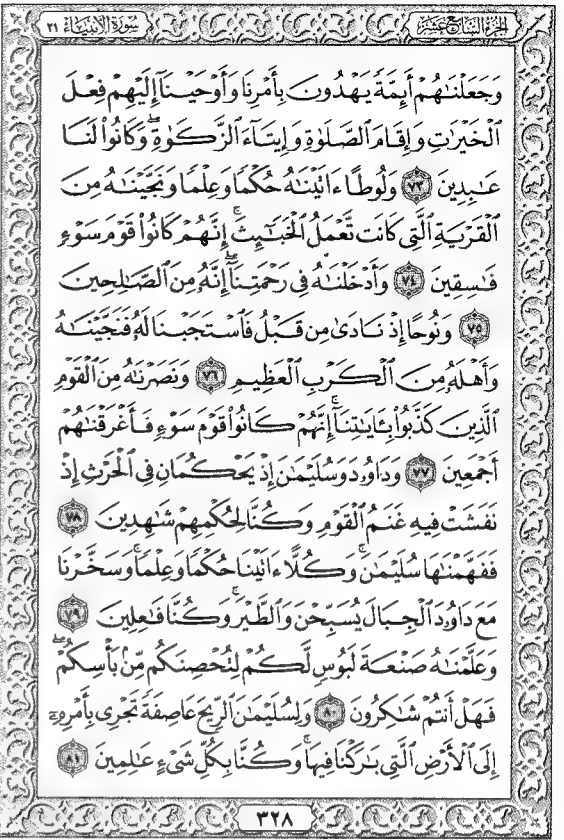 الجزء السابع عشر
سورة الأنبياء ٢١
وَجَعَلْنَٰهُمْ أَئِمَّةً يَهْدُونَ بِأَمْرِنَا وَأَوْحَيْنَآ إِلَيْهِمْ فِعْلَ
ٱلْخَيْرَٰتِ وَإِقَامَ ٱلصَّلَوٰةِ وَإِيتَآءَ ٱلزَّكَوٰةِ ۖ وَكَانُوا۟ لَنَا
عَٰبِدِينَ ٧٣ وَلُوطًا ءَاتَيْنَٰهُ حُكْمًا وَعِلْمًا وَنَجَّيْنَٰهُ مِنَ
ٱلْقَرْيَةِ ٱلَّتِى كَانَت تَّعْمَلُ ٱلْخَبَٰٓئِثَ ۗ إِنَّهُمْ كَانُوا۟ قَوْمَ سَوْءٍ
فَٰسِقِينَ ٧٤ وَأَدْخَلْنَٰهُ فِى رَحْمَتِنَآ ۖ إِنَّهُۥ مِنَ ٱلصَّٰلِحِينَ
٧٥ وَنُوحًا إِذْ نَادَىٰ مِن قَبْلُ فَٱسْتَجَبْنَا لَهُۥ فَنَجَّيْنَٰهُ
وَأَهْلَهُۥ مِنَ ٱلْكَرْبِ ٱلْعَظِيمِ ٧٦ وَنَصَرْنَٰهُ مِنَ ٱلْقَوْمِ
ٱلَّذِينَ كَذَّبُوا۟ بِـَٔايَٰتِنَآ ۚ إِنَّهُمْ كَانُوا۟ قَوْمَ سَوْءٍ فَأَغْرَقْنَٰهُمْ
أَجْمَعِينَ ٧٧ وَدَاوُۥدَ وَسُلَيْمَٰنَ إِذْ يَحْكُمَانِ فِى ٱلْحَرْثِ إِذْ
نَفَشَتْ فِيهِ غَنَمُ ٱلْقَوْمِ وَكُنَّا لِحُكْمِهِمْ شَٰهِدِينَ ٧٨
فَفَهَّمْنَٰهَا سُلَيْمَٰنَ ۚ وَكُلًّا ءَاتَيْنَا حُكْمًا وَعِلْمًا ۚ وَسَخَّرْنَا
مَعَ دَاوُۥدَ ٱلْجِبَالَ يُسَبِّحْنَ وَٱلطَّيْرَ ۚ وَكُنَّا فَٰعِلِينَ ٧٩
وَعَلَّمْنَٰهُ صَنْعَةَ لَبُوسٍ لَّكُمْ لِتُحْصِنَكُم مِّنۢ بَأْسِكُمْ ۖ
فَهَلْ أَنتُمْ شَٰكِرُونَ ٨٠ وَلِسُلَيْمَٰنَ ٱلرِّيحَ عَاصِفَةً تَجْرِى بِأَمْرِهِۦٓ
إِلَى ٱلْأَرْضِ ٱلَّتِى بَٰرَكْنَا فِيهَا ۚ وَكُنَّا بِكُلِّ شَىْءٍ عَٰلِمِينَ ٨١
٣٢٨